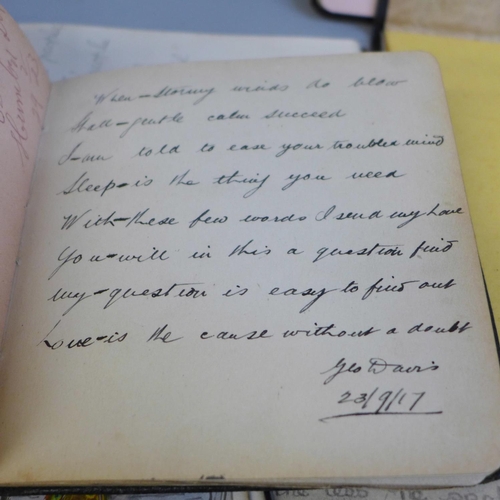 When - Stormy winds do blow
Shall - gentle calm succeed
I - am told to ease your troubled mind
Sleep - is the thing you need
With - these few words I send my Love
You - will in this a question find
my - question is easy to find out
Love - is the cause without a doubt
Geo Davis
23/9/17